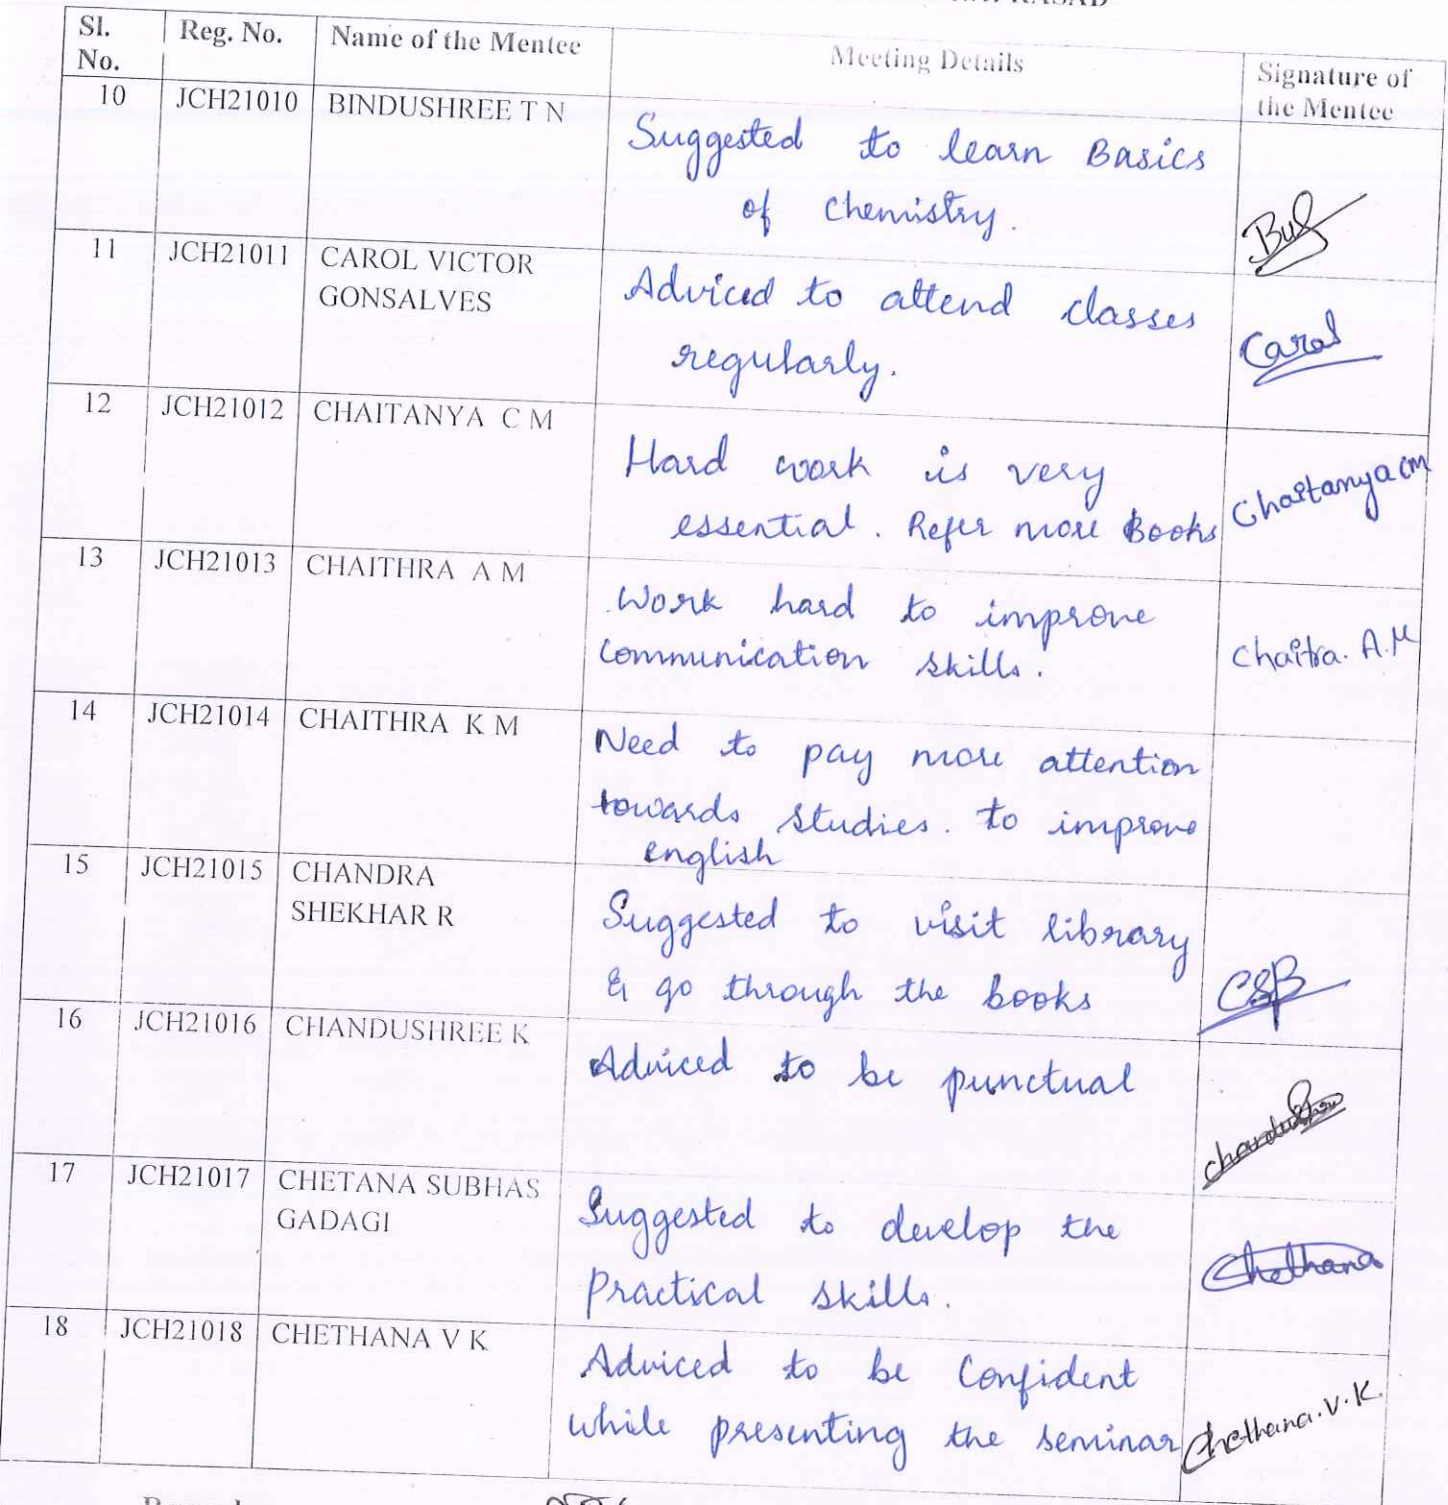 Sl. No. Reg. No. Name of the Mentee Meeting Details Signature of the Mentee
10 JCH21010 BINDUSHREE T N
Suggested to learn Basics
of Chemistry.
11 JCH21011 CAROL VICTOR
GONSALVES
Adviced to attend classes
regularly.
Carol
12 JCH21012 CHAITANYA C M
Hard work is very
essential. Refer more Books
Chaitanya CM
13 JCH21013 CHAITHRA A M
Work hard to improve
Communication skills.
Chaitra. A.M
14 JCH21014 CHAITHRA K M
Need to pay more attention
towards studies. to improve
english
15 JCH21015 CHANDRA
SHEKHAR R
Suggested to visit library
& go through the books
16 JCH21016 CHANDUSHREE K
Adviced to be punctual
17 JCH21017 CHETANA SUBHAS
GADAGI
Suggested to develop the
Practical skills.
Chethana
18 JCH21018 CHETHANA V K
Adviced to be Confident
while presenting the seminar
Chethana.V.K.